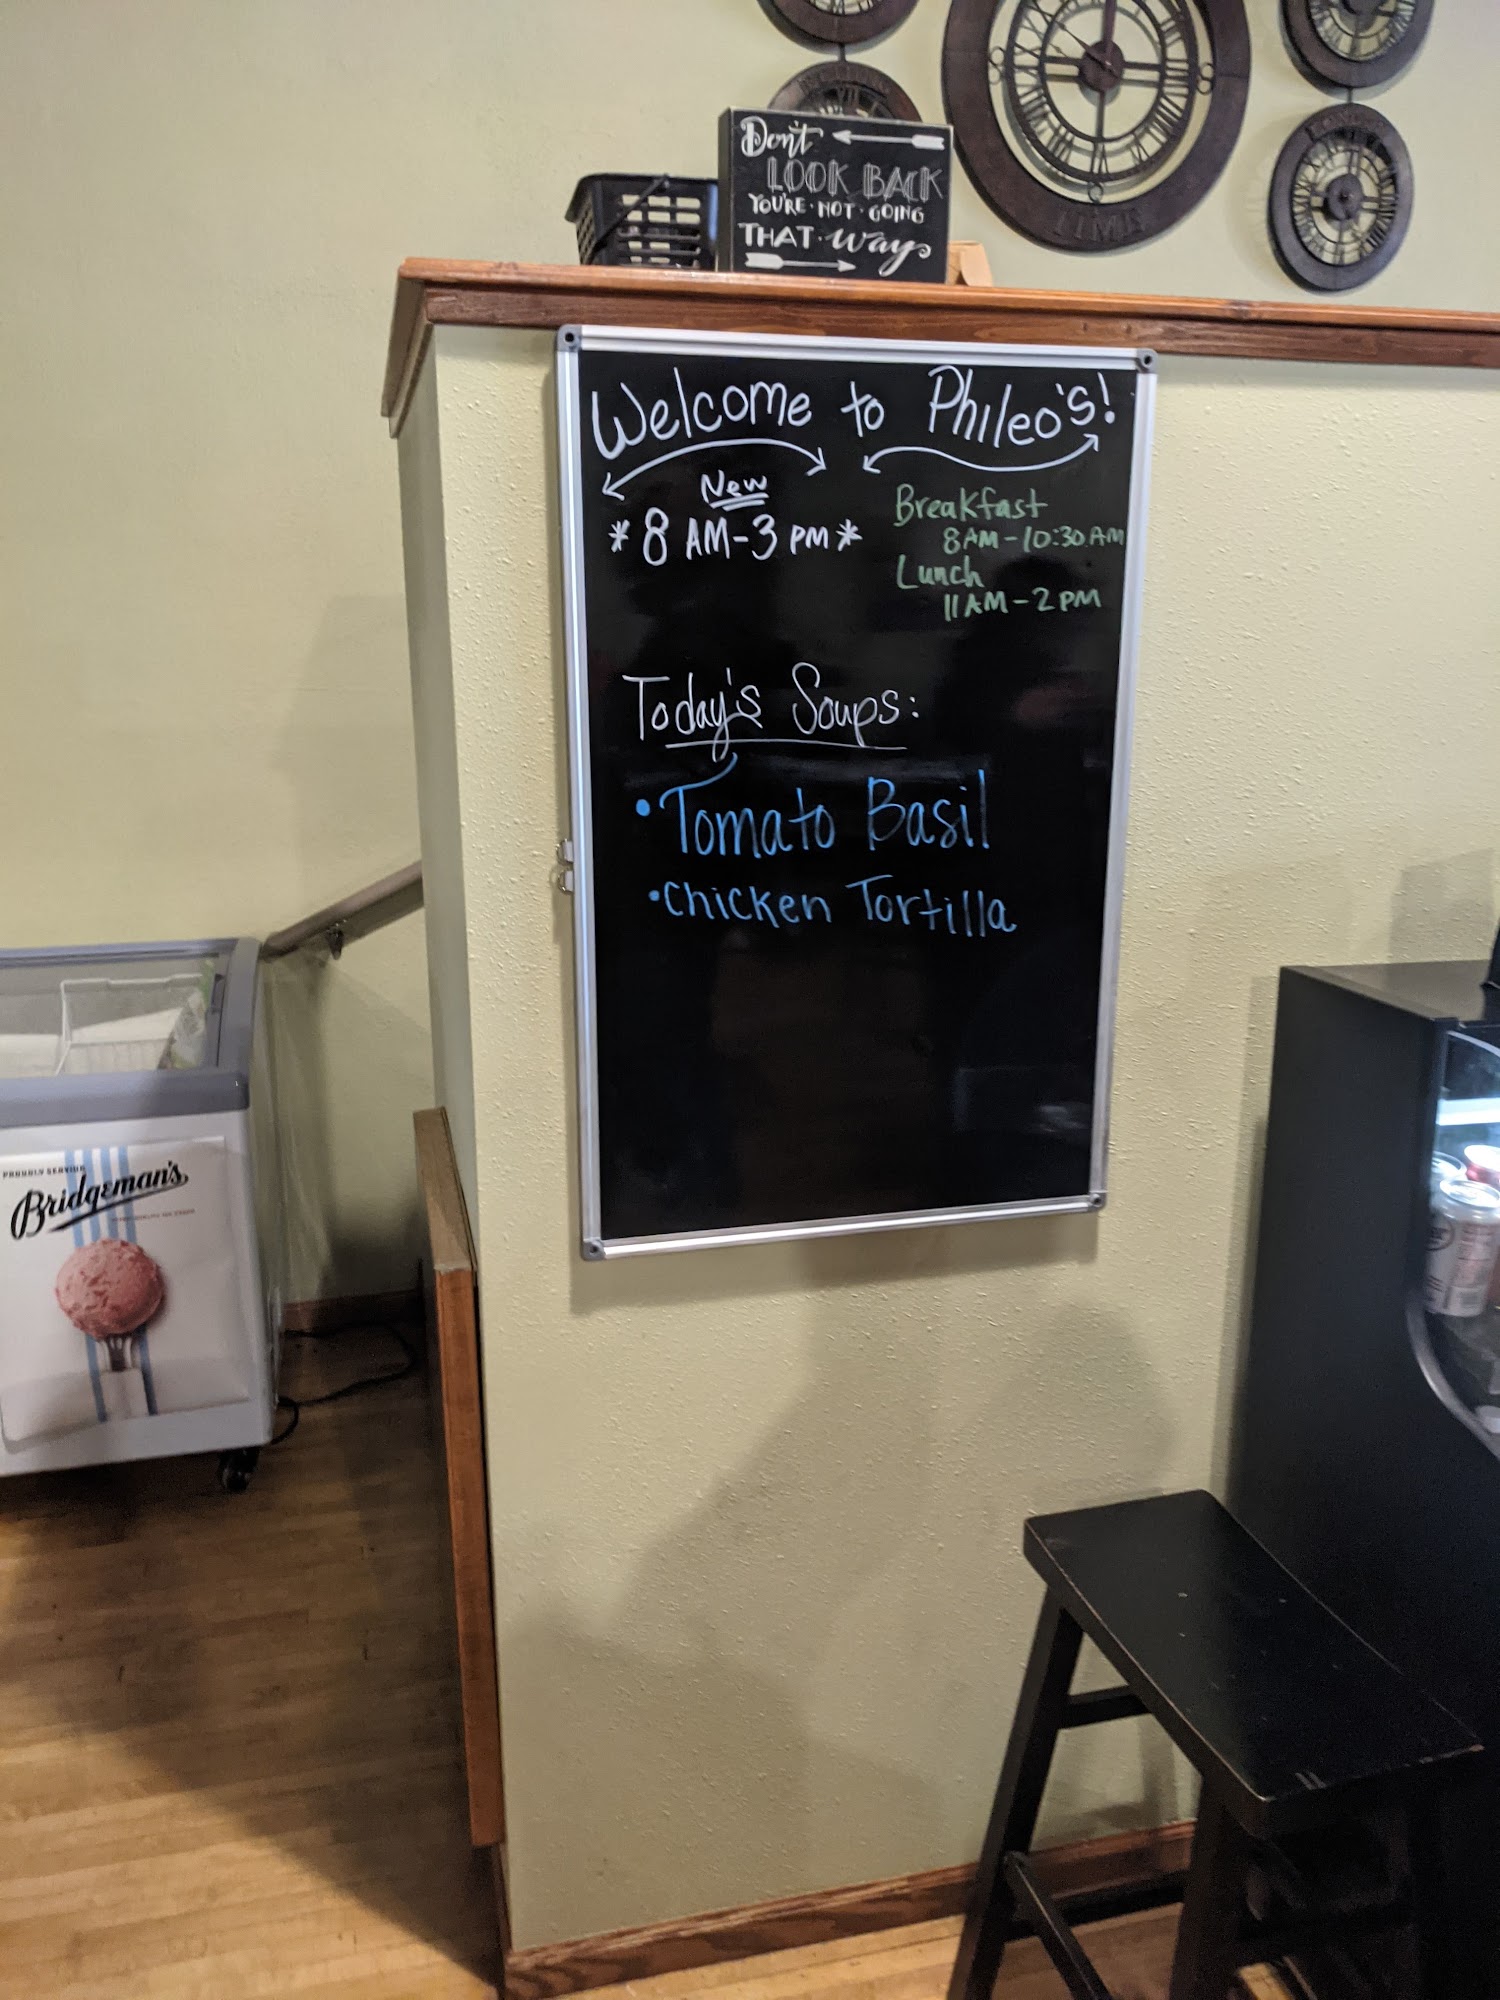 Don't
LOOK BACK
YOU'RE·NOT·GOING
THAT·Way
TIME
Welcome to Phileo's!
New
*8 AM-3 PM*
Breakfast
8AM-10:30AM
Lunch
11AM-2PM
Today's Soups:
•Tomato Basil
•Chicken Tortilla
PROUDLY SERVING
Bridgeman's